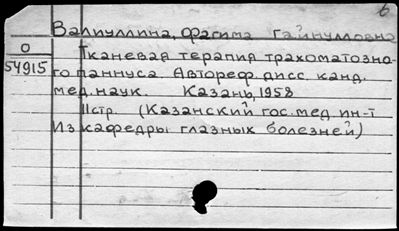 б
Валиуллина, Фагима Гайнулловна
О
54915
Тканевая терапия трахоматозно-
го паннуса. Автореф. дисс. канд.
мед. наук. Казань, 1958
11стр. (Казанский гос. мед. ин-т
Из кафедры глазных болезней)